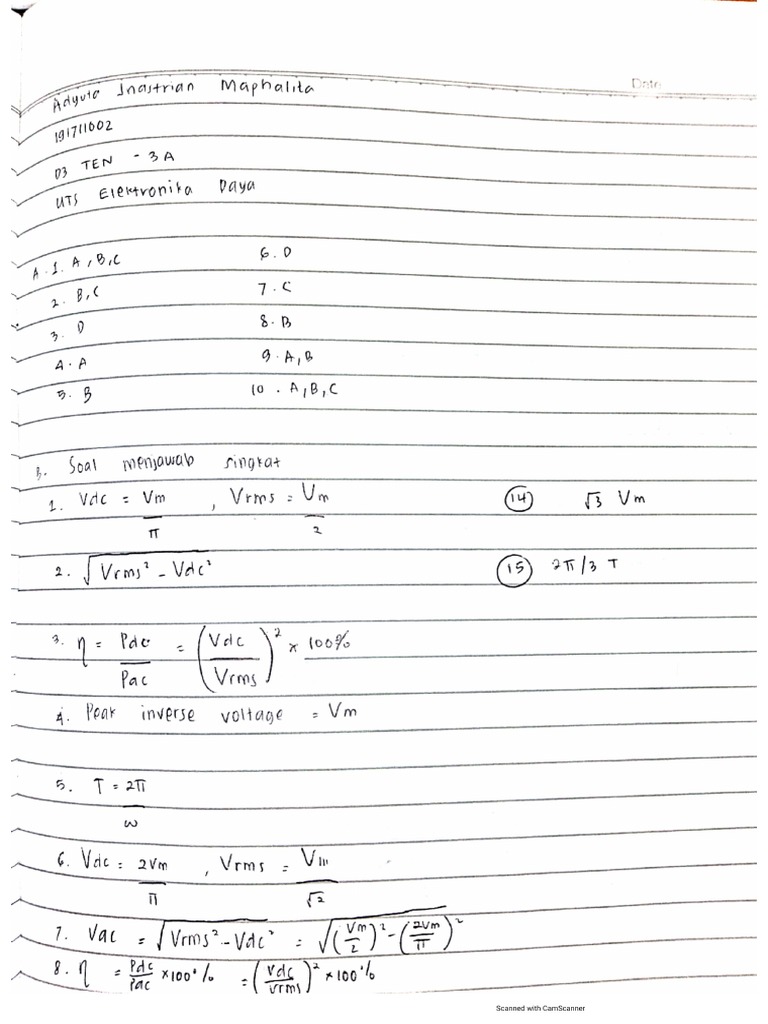 Date
Adyuta Inastrian Maphalita
191711002
D3 TEN - 3A
UTS Elektronika Daya
A. 1. A, B, C 6. D
2. B, C 7. C
3. D 8. B
4. A 9. A, B
5. B 10. A, B, C
B. Soal menjawab singkat
1. Vdc = Vm/π , Vrms = Vm/2 (14) √3 Vm
2. √(Vrms² - Vdc²) (15) 2π/3 T
3. η = Pdc/Pac = (Vdc/Vrms)² × 100%
4. Peak inverse voltage = Vm
5. T = 2π/ω
6. Vdc = 2Vm/π , Vrms = Vm/√2
7. Vac = √(Vrms² - Vdc²) = √((Vm/2)² - (2Vm/π)²)
8. η = Pdc/Pac × 100% = (Vdc/Vrms)² × 100%
Scanned with CamScanner